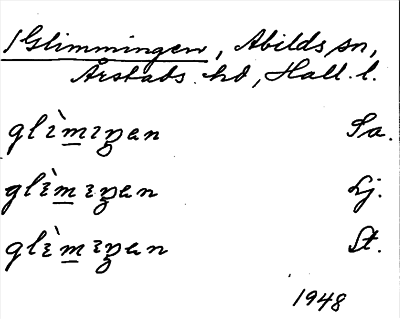 /Glimmingen, Abilds sn,
Årstads hd, Hall. l.
glìm̲ɪŋen Sa.
glìm̲ɪŋen Lj.
glìm̲ɪŋen St.
1948